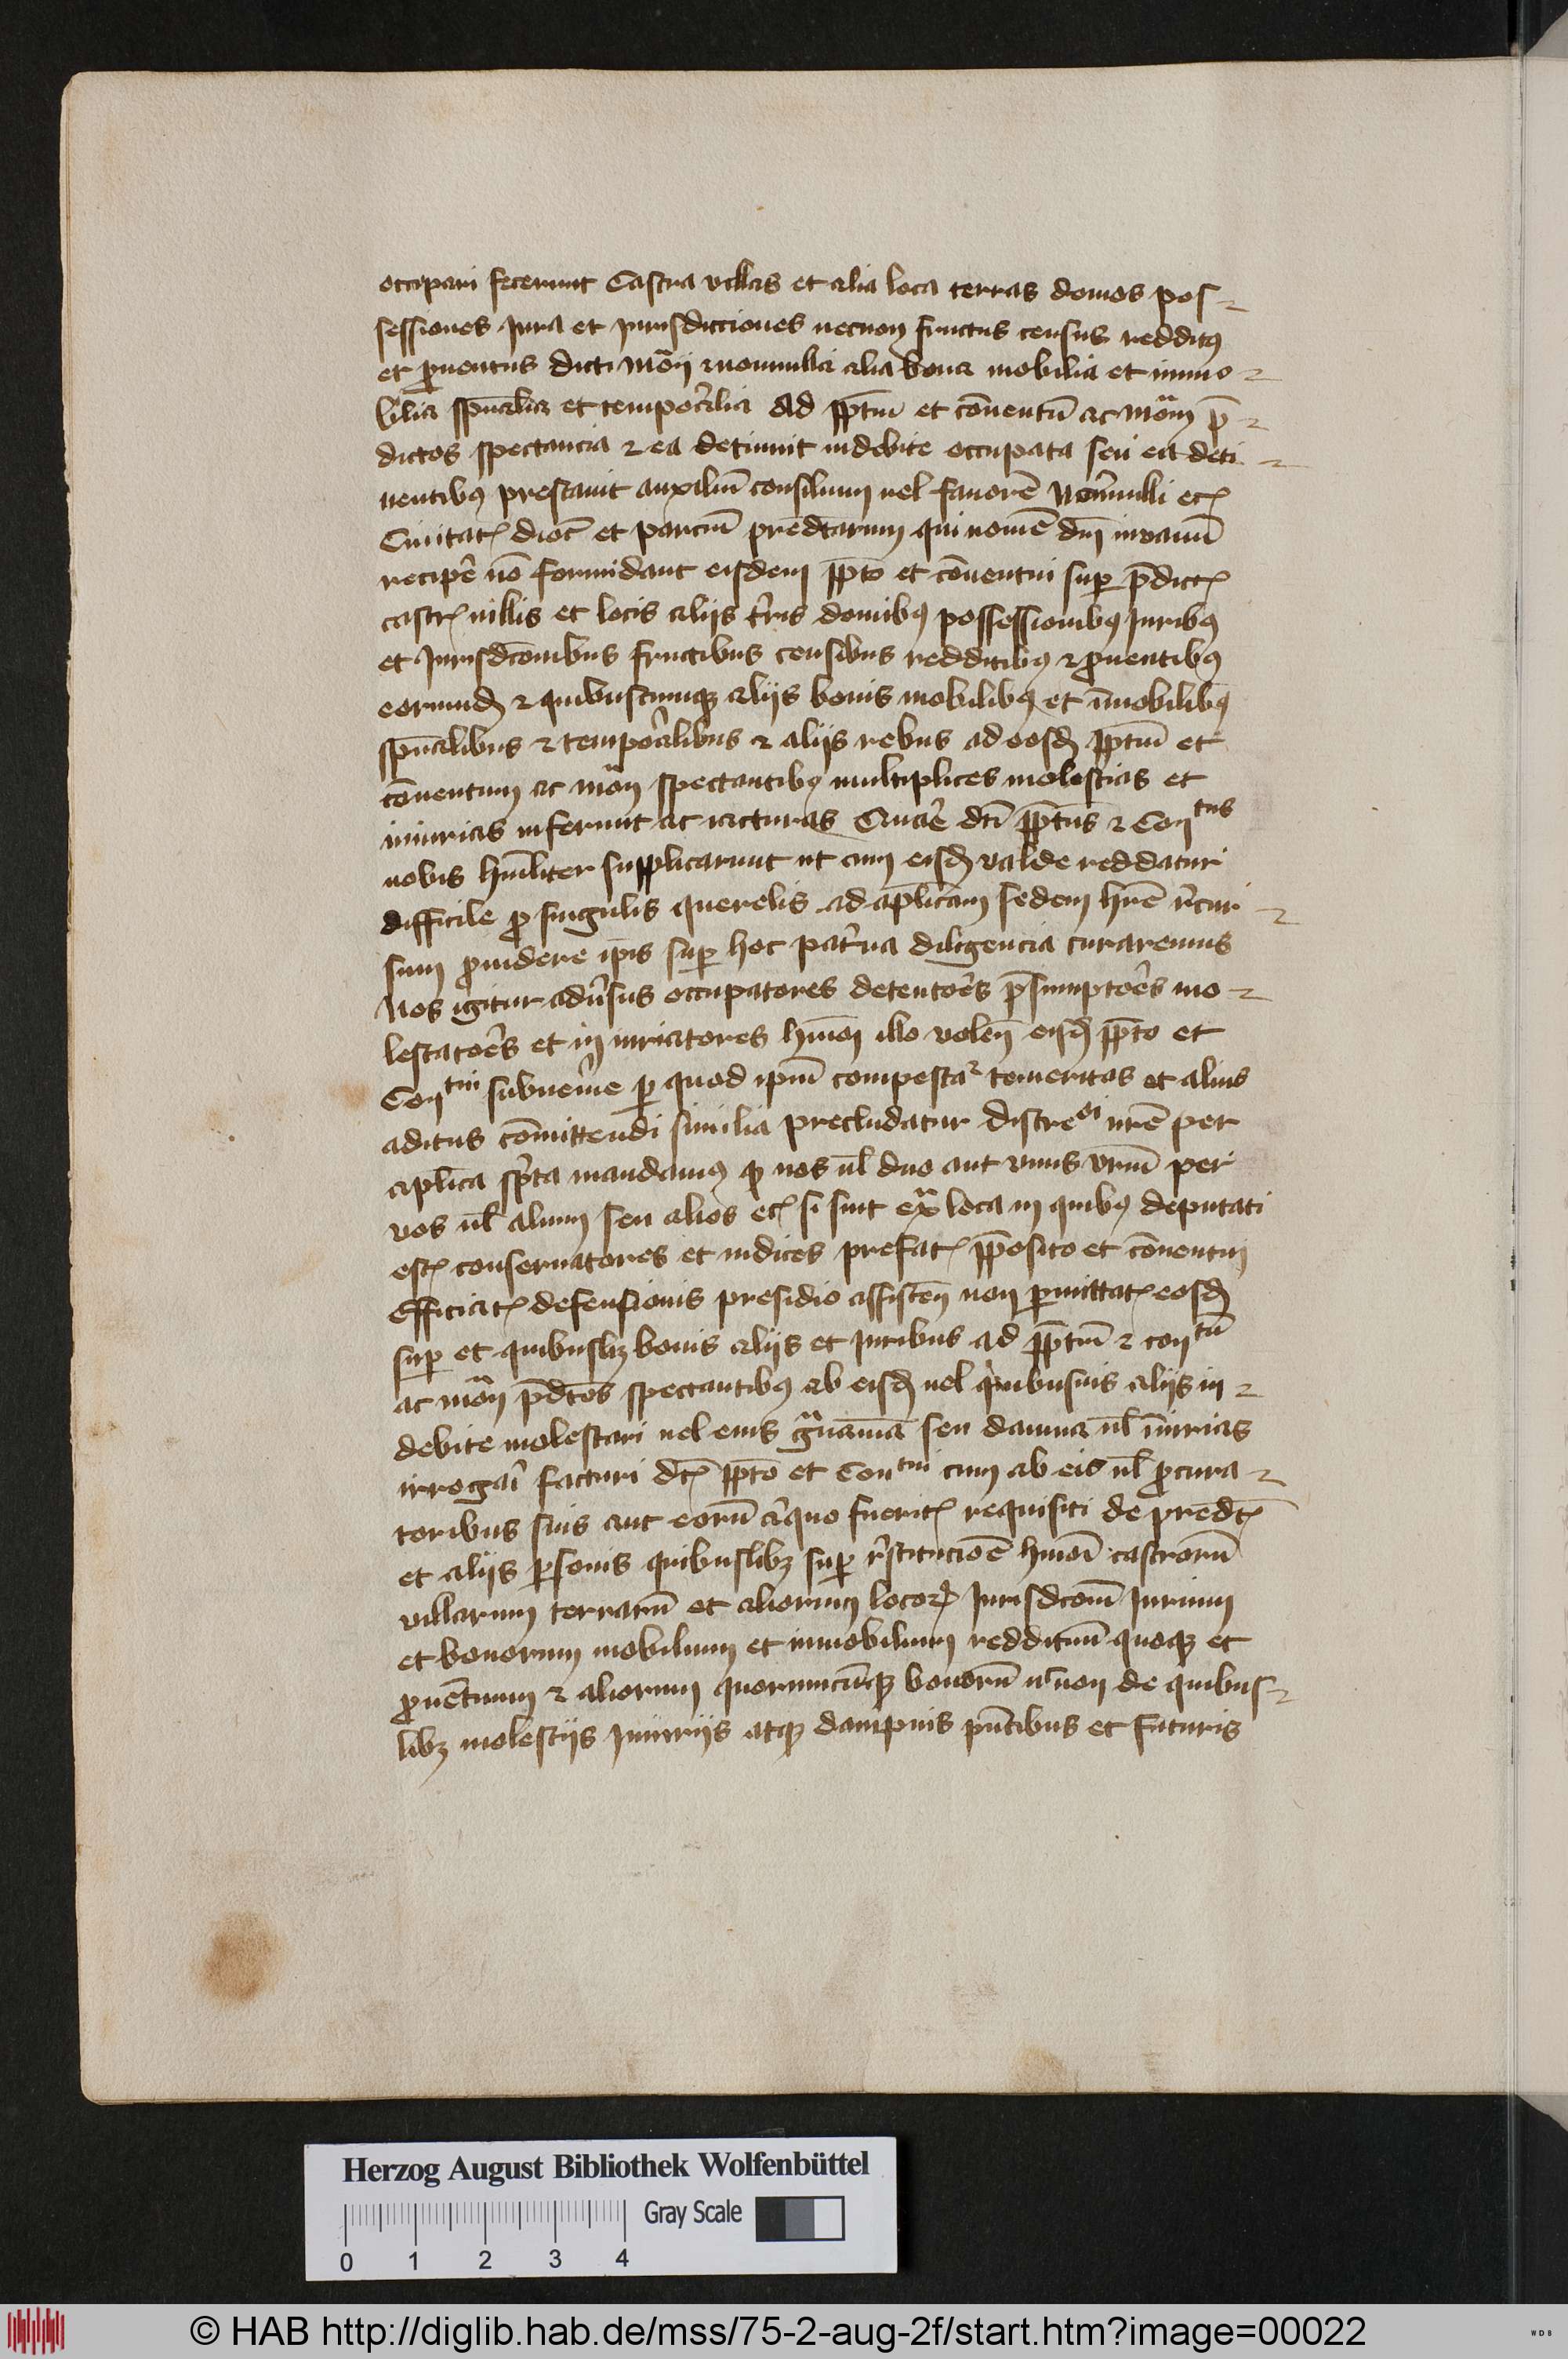 occupari fecerunt Castra villas et alia loca terras domos pos-
sessiones Jura et Jurisdicciones necnon fructus census redditꝰ
et ꝓuentus dicti mōrij ⁊ nonnulla alia bona mobilia et inmo-
bilia spūalia et tempoꝛalia Ad ppt̄m et cōuentū ac mōm p̄-
dictos spectancia ⁊ ea detinuit indebite occupata seu ea deti-
nentibꝰ prestauit auxiliū consilium uel fauorē Nōnulli etꝭ
Ciuitatꝭ dioc̄ et parciū pred̄tarum qui nomē dn̄i inuanū
recipe᷑ nō formidant eisdem pp̄to et cōuentui suꝑ p̄dictꝭ
castrꝭ uillis et locis alijs t̄ris domibꝰ possessionibꝰ Juribꝰ
et Jurisdc̄onibus fructibus censibus redditibꝰ ⁊ ꝓuentibꝰ
eorund̄ ⁊ quibuscumqꝫ alijs bonis mobilibꝰ et īmobilibꝰ
spūalibus ⁊ tempoꝛalibus ⁊ alijs rebus ad eosd̄ pp̄tm̄ et
cōuentum ac mōn spectantibꝰ multiplices molestias et
iniurias inferunt ac iacturas Quar̄e dc̄i pp̄tus ⁊ Conᵗᵘˢ
nobis hūiliter supplicarunt ut cum eisd̄ valde reddatur
difficile ꝓ singulis querelis ad aplicam sedem hr̄e r̄cur-
sum ꝓuidere ip̄is suꝑ hoc pat̄na diligencia curaremus
Nos igitur adu̓sus occupatores detento̓es p̄sumpto̓es mo-
lestato̓es et in iuriatores hmōi illo volen̄ eisd̄ pp̄to et
Conᵗᵘⁱ subueni̓e ꝑ quod ipm̄ compesta² temeritas et alius
aditus cōmittendi similia precludatur discreᵒⁱ ur̄e per
aplīca sc̓pta mandamꝰ ꝙ uos ul̄ duo aut vnus vr̄m per
vos ul̄ alium seu alios etꝭ si sint ex̄ loca in quibꝰ deputati
estꝭ conseruatores et iudices prefatꝭ pp̄osito et cōuentui
Efficiatꝭ defensionis presidio assisten̄ non ꝑmittatꝭ eosd̄
suꝑ et quibuslꝫ bonis alijs et Juribus ad pp̄tm̄ ⁊ conᵗū
ac mōn p̄dc̄os spectantibꝰ ab eisd̄ uel quibusuis alijs in-
debite molestari uel eius gr̄uamīa seu damna ul̄ īiurias
irrogar̄i facturi dc̄ꝭ pp̄to et Conᵗᵘⁱ cum ab eis ul̄ ꝓcura-
toribus suis aut eorū aliquo fueritꝭ requisiti de pred̄tꝭ
et alijs ꝑsonis quibuslibꝫ suꝑ r̓stitucioē hmōi castrorū
villarum terrarū et aliorum locoꝝ Jurisdc̄onū Jurium
et bonorum mobilium et inmobilium reddituū quoqꝫ et
ꝓuētuum ⁊ aliorum quorumcūqꝫ bonorū n̓non de quibus-
libꝫ molestijs Jniurijs atqꝫ dampnis pn̄tibus et futuris
Herzog August Bibliothek Wolfenbüttel
Gray Scale
0 1 2 3 4
© HAB http://diglib.hab.de/mss/75-2-aug-2f/start.htm?image=00022